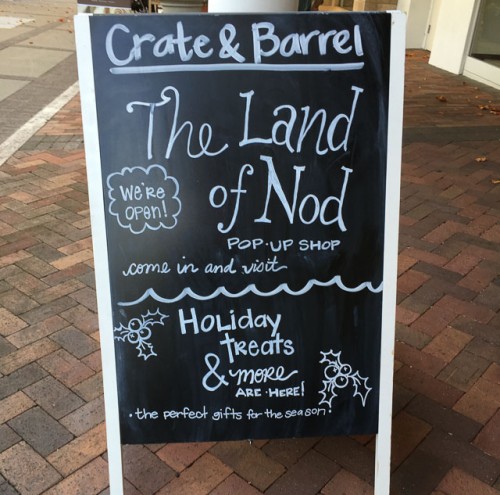 Crate & Barrel
The Land
We're
open!
of Nod
POP-UP SHOP
come in and visit
Holiday
treats
& more
ARE HERE!
• the perfect gifts for the season •